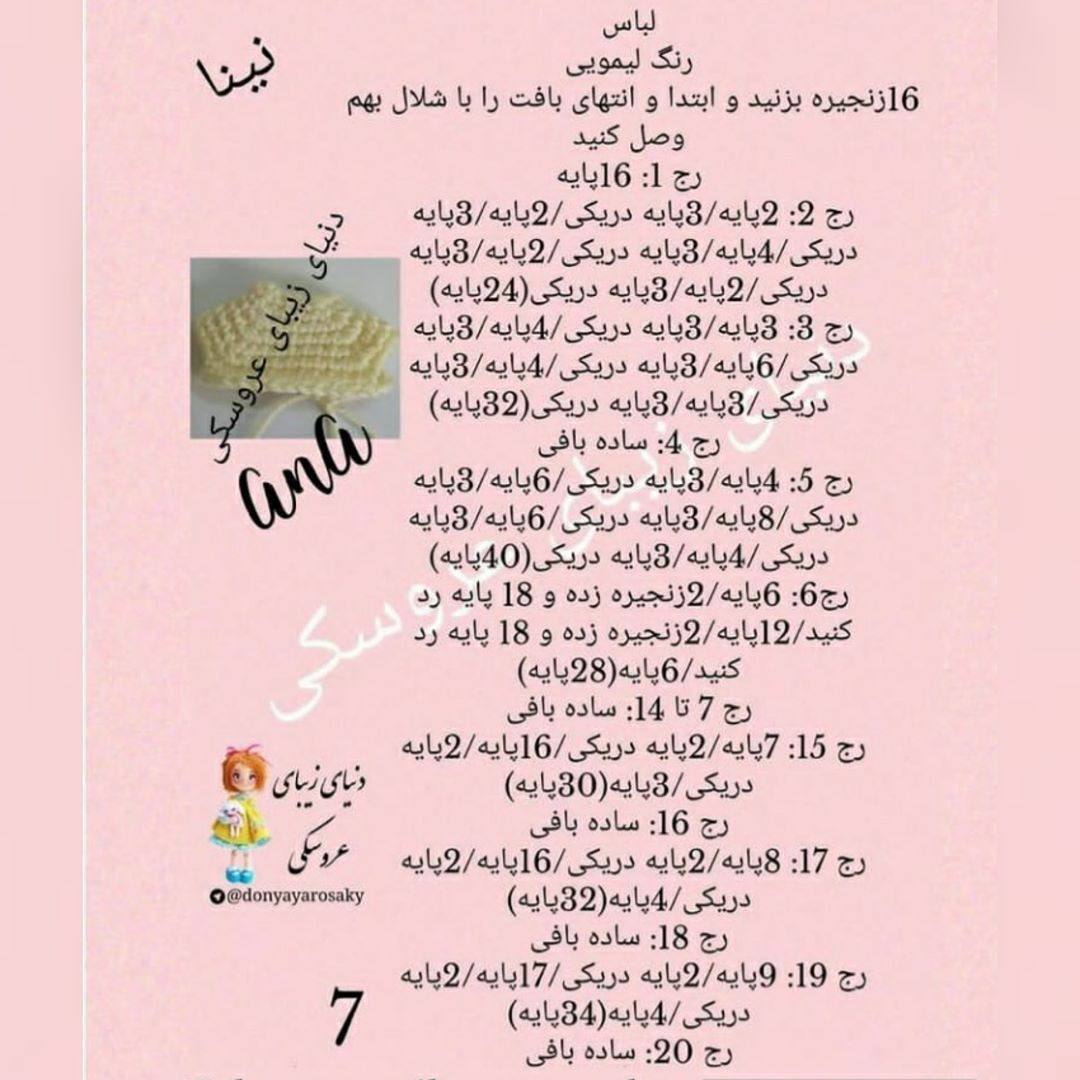 نینا
لباس
رنگ لیمویی
16زنجیره بزنید و ابتدا و انتهای بافت را با شلال بهم
وصل کنید
رج 1: 16پایه
رج 2: 2پایه/3پایه دریکی/2پایه/3پایه
دریکی/4پایه/3پایه دریکی/2پایه/3پایه
دریکی/2پایه/3پایه دریکی(24پایه)
رج 3: 3پایه/3پایه دریکی/4پایه/3پایه
دریکی/6پایه/3پایه دریکی/4پایه/3پایه
دریکی/3پایه/3پایه دریکی(32پایه)
رج 4: ساده بافی
رج 5: 4پایه/3پایه دریکی/6پایه/3پایه
دریکی/8پایه/3پایه دریکی/6پایه/3پایه
دریکی/4پایه/3پایه دریکی(40پایه)
رج6: 6پایه/2زنجیره زده و 18 پایه رد
کنید/12پایه/2زنجیره زده و 18 پایه رد
کنید/6پایه(28پایه)
رج 7 تا 14: ساده بافی
رج 15: 7پایه/2پایه دریکی/16پایه/2پایه
دریکی/3پایه(30پایه)
رج 16: ساده بافی
رج 17: 8پایه/2پایه دریکی/16پایه/2پایه
دریکی/4پایه(32پایه)
رج 18: ساده بافی
رج 19: 9پایه/2پایه دریکی/17پایه/2پایه
دریکی/4پایه(34پایه)
رج 20: ساده بافی
دنیای زیبای عروسکی
ana
دنیای زیبای عروسکی
دنیای زیبای
عروسکی
@donyayarosaky
7